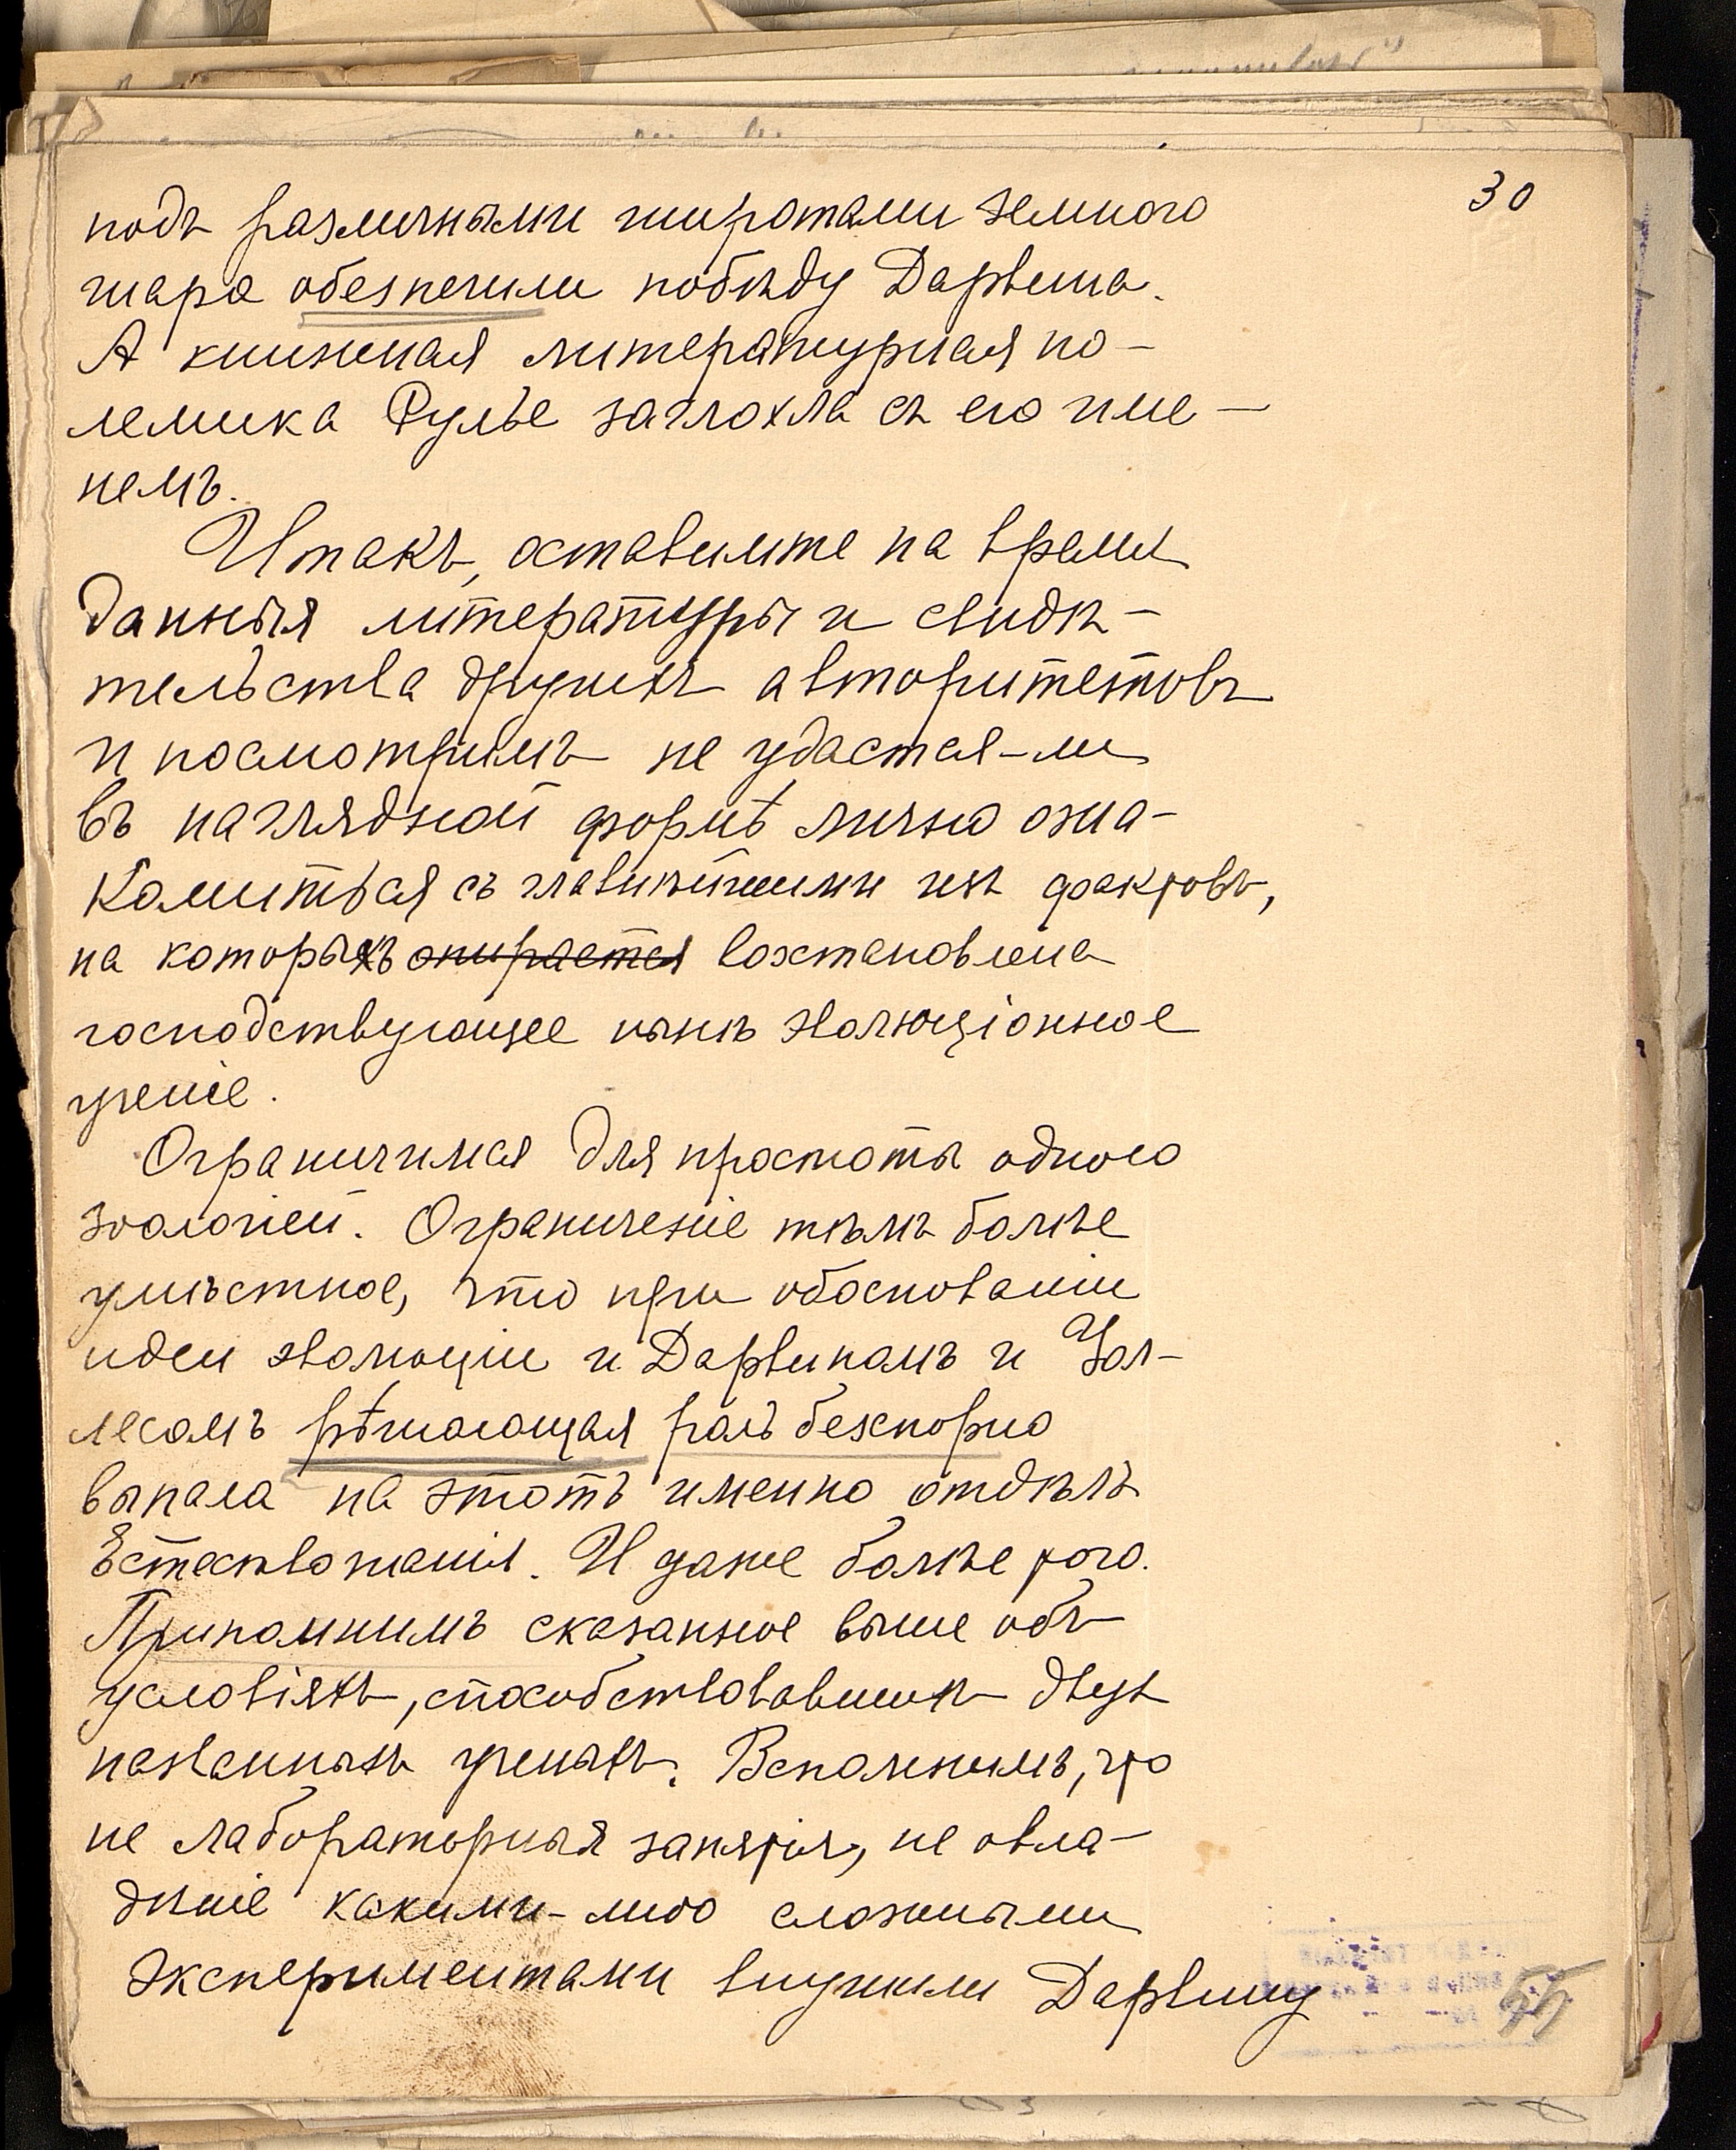 30
подъ различными широтами земного
шара обезпечили побѣду Дарвина.
А книжная литературная по-
лемика Рулье заглохла съ его име-
немъ.
Итакъ, оставимте на время
данныя литературы и свидѣ-
тельства другихъ авторитетовъ
и посмотримъ не удастся-ли
въ наглядной формѣ лично озна-
комиться съ главнѣйшими изъ фактовъ,
на которыхъ опирается возстановлена
господствующее нынѣ эволюціонное
ученіе.
Ограничимся для простоты одною
зоологіей. Ограниченіе тѣмъ болѣе
умѣстное, что при обоснованіи
идеи эволюціи и Дарвиномъ и Уол-
лесомъ рѣшающая роль безспорно
выпала на этотъ именно отдѣлъ
Естествознанія. И даже болѣе того.
Припомнимъ сказанное выше объ
условіяхъ, способствовавшихъ двухъ
названныхъ ученыхъ. Вспомнимъ, что
не лабораторныя занятія, не овла-
дѣніе какими-либо сложными
экспериментами внушили Дарвину
55